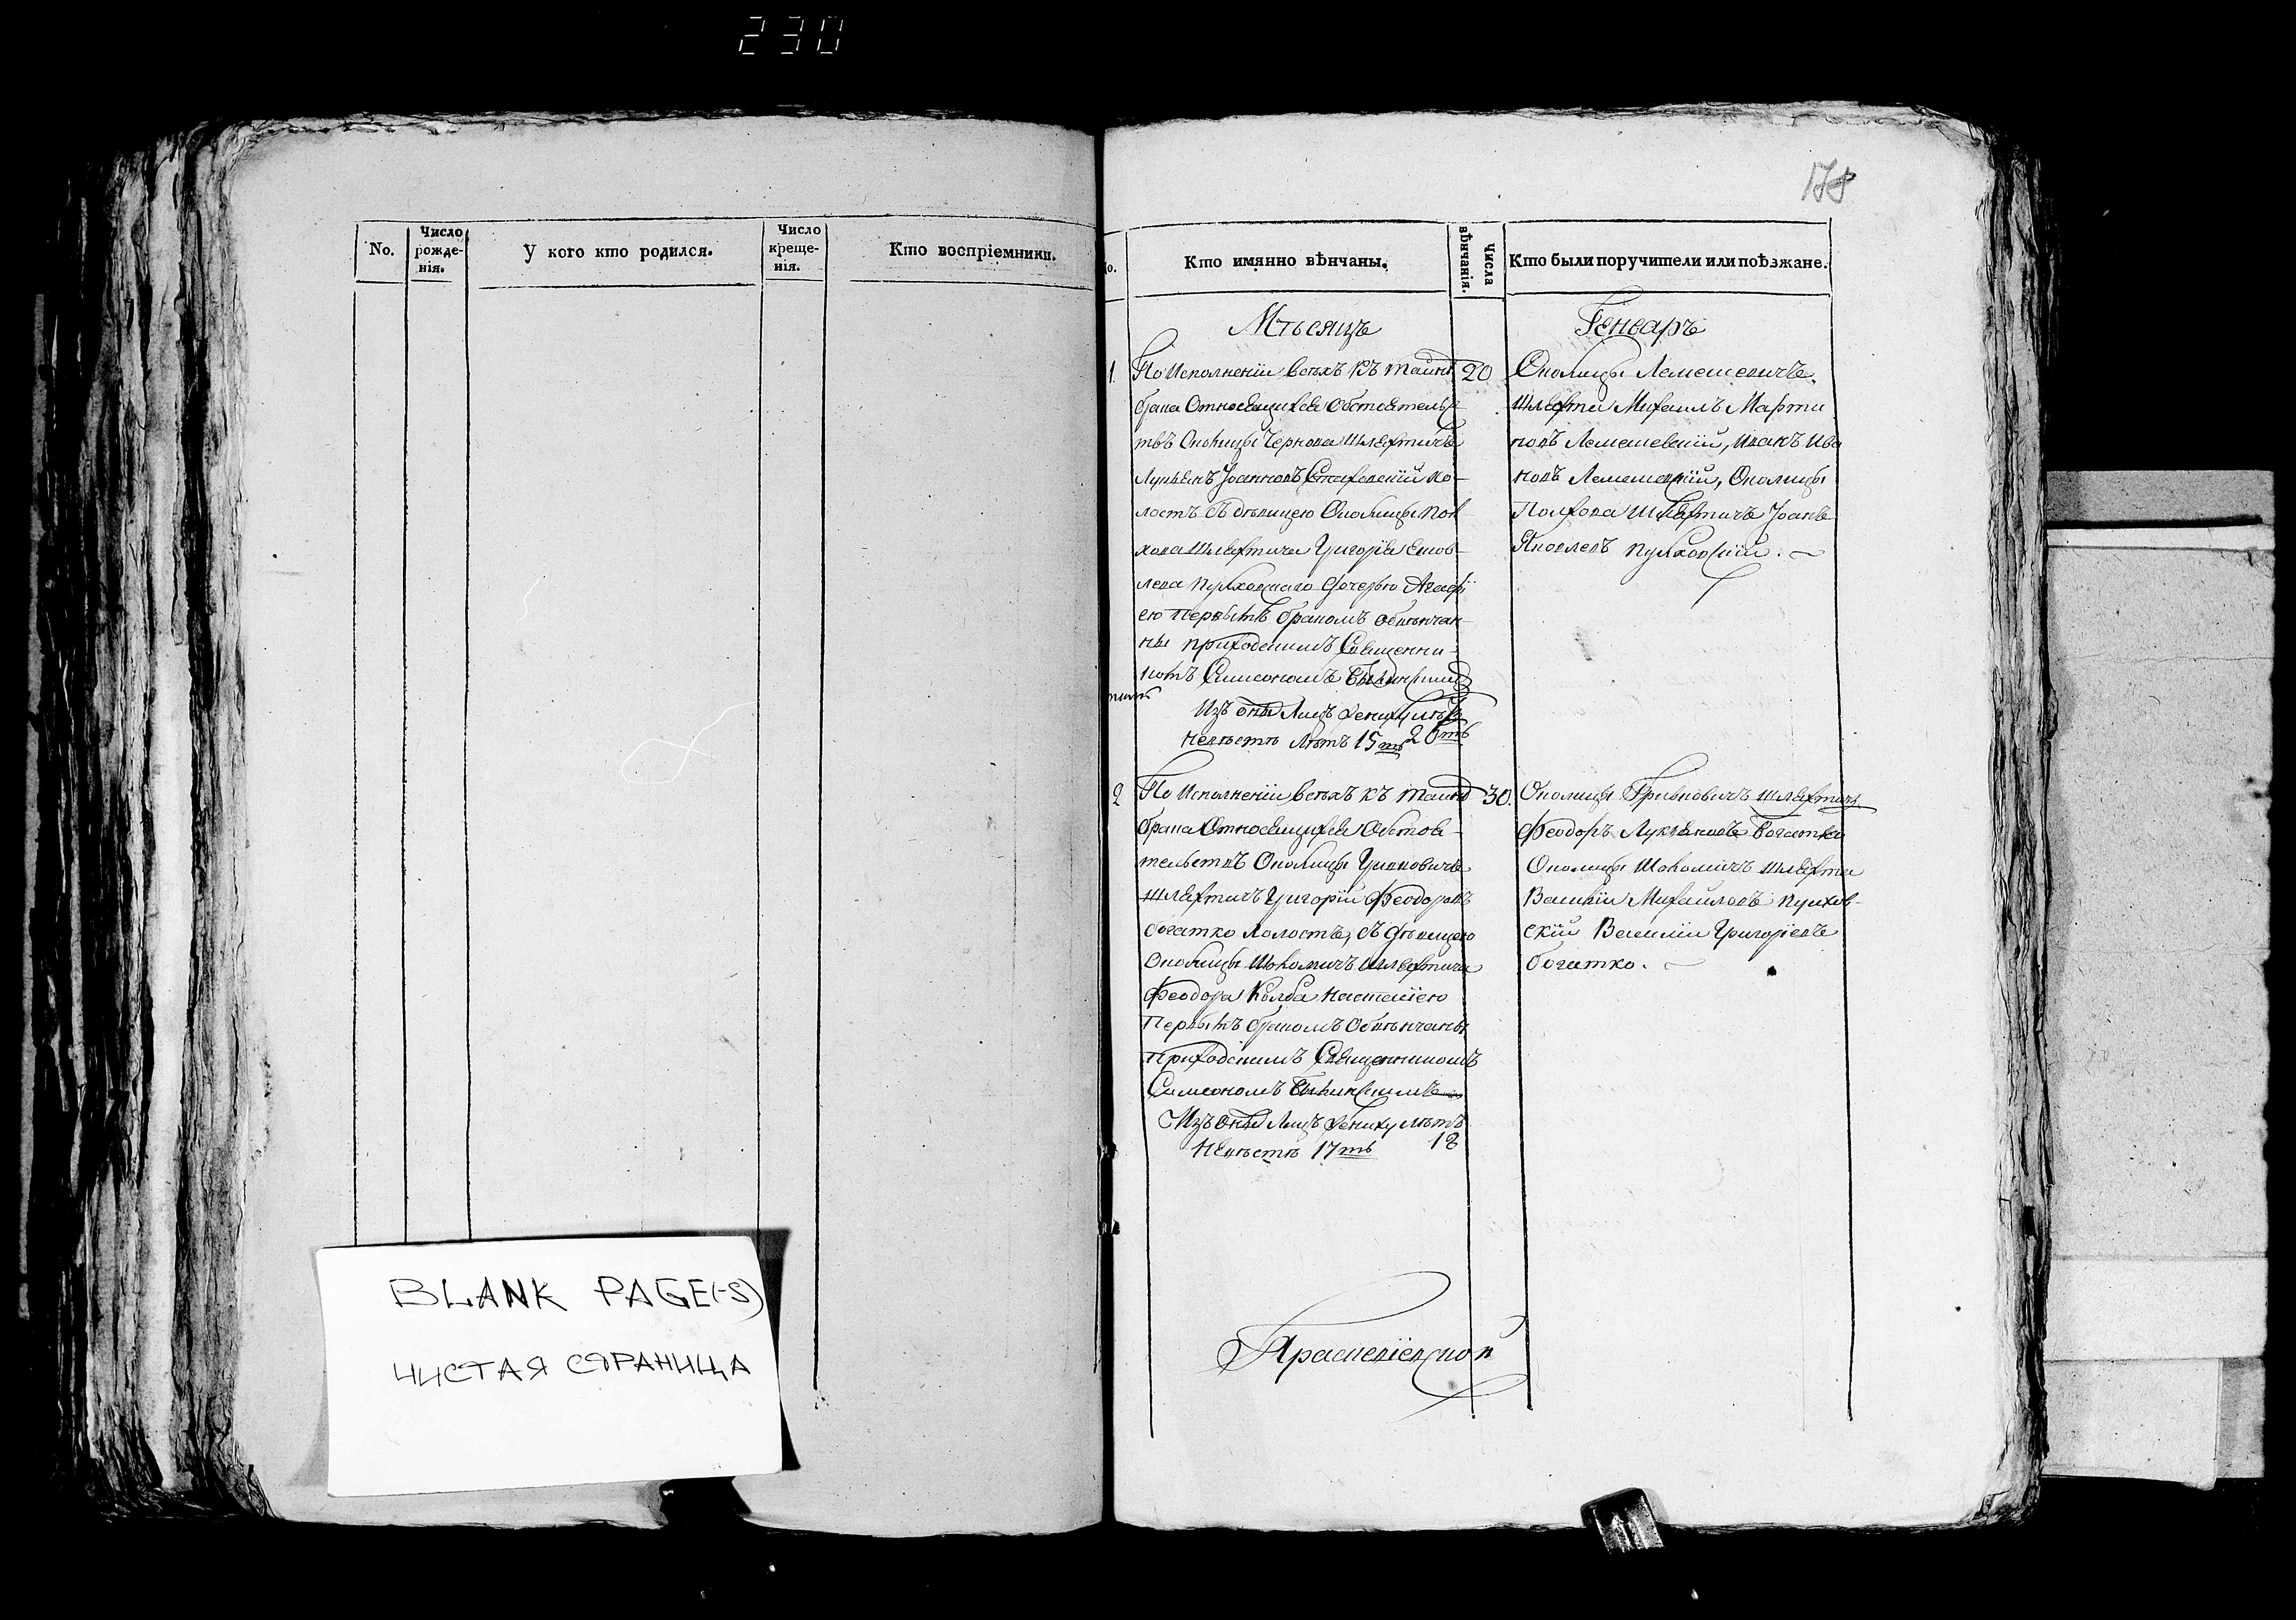 230
178
No.
Число рожде-нія.
У кого кто родился.
Число креще-нія.
Кто воспріемники.
Кто имянно вѣнчаны.
Числа вѣнчанія.
Кто были поручители или поѣзжане.
Мѣсяцъ
Генваръ
1. По Исполненіи всѣхъ къ тайнѣ 20
брака Относящихся обстоятельс
твъ Околицы Чернова Шляхтичъ
Лукьянъ Іоанновъ хо-
лостъ съ дѣвицею Околицы Пол
хова Шляхтича Григорія Яков-
лева Пулховскаго дочерью Агафі
ею Первымъ бракомъ обвѣнчан-
ны приходскимъ Священни-
комъ Симеономъ
Изъ оныхъ Лицъ жениху лѣтъ
Невѣстѣ лѣтъ 15ть 20ть
Околицы Лемешевичъ
Шляхти Михаилъ Марти
новъ Лемешевскій, Иванъ Ива
новъ Лемешевскій, Околицы
Полхова Шляхтичъ Іоанъ
Яковлевъ Пулховскій.
2 По Исполненіи всѣхъ къ тайнѣ 30.
брака Относящихся Обстоя-
тельствъ Околицы Гривковичъ
шляхтичъ Григорій Феодоровъ
богатко холостъ, съ дѣвицею
Околицы Шоломичъ шляхтича
Феодора Колба Настасіею
Первымъ бракомъ Обвѣнчаны
Приходскимъ Священникомъ
Симеономъ
Изъ оныхъ Лицъ жениху лѣтъ
Невѣстѣ 17ть 18
Околицы Гривковичъ шляхтичъ
Феодоръ Лукьяновъ Богатко
Околицы Шоломичъ шляхти
Василіи Михайловъ Пулхов-
скій Василіи Григоріевъ
богатко.
BLANK PAGE(-S)
ЧИСТАЯ СТРАНИЦА